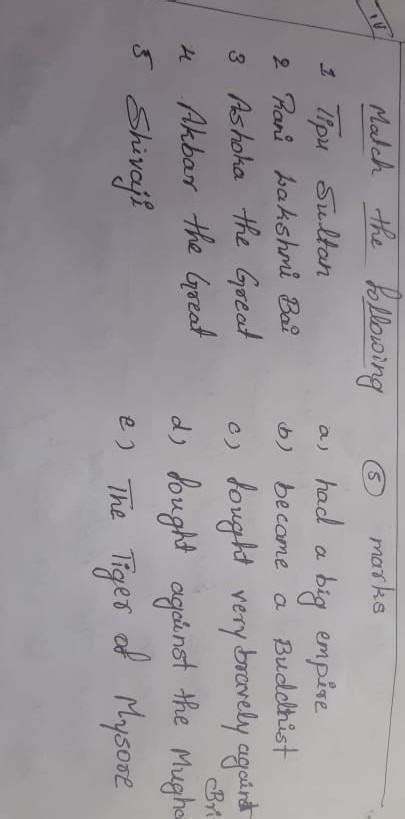 IV Match the following (5) marks
1 Tipu Sultan a) had a big empire
2 Rani Lakshmi Bai b) became a Buddhist
3 Ashoka the Great c) fought very bravely against
Bri
4 Akbar the Great d) fought against the Mugha
5 Shivaji e) The Tiger of Mysore